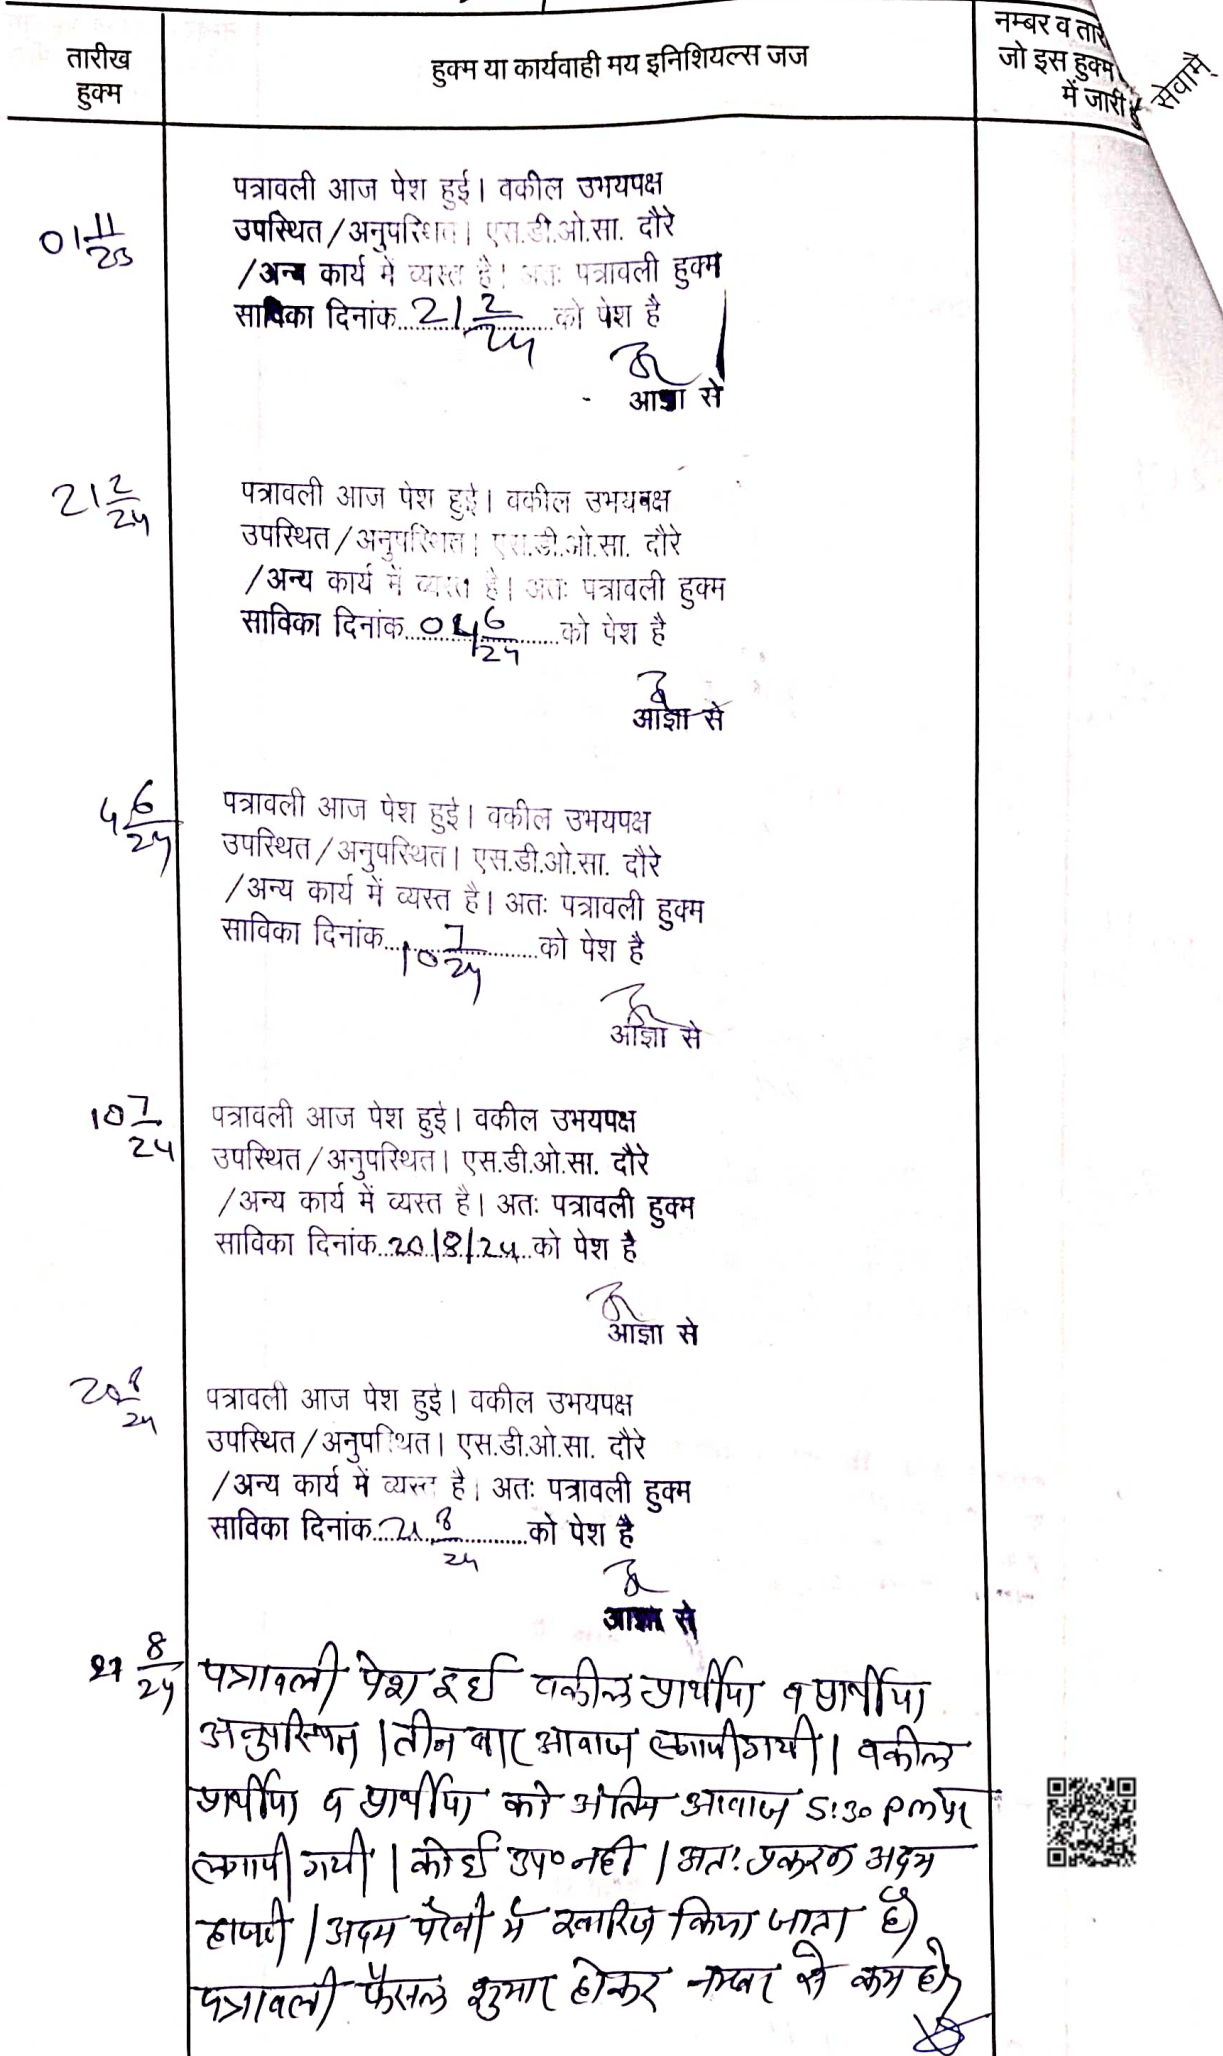 तारीख
हुक्म
हुक्म या कार्यवाही मय इनिशियल्स जज
नम्बर व तारी
जो इस हुक्म
में जारी हु
सेवामें
01 11/23
पत्रावली आज पेश हुई। वकील उभयपक्ष
उपस्थित/अनुपस्थित। एस.डी.ओ.सा. दौरे
/अन्य कार्य में व्यस्त है। अतः पत्रावली हुक्म
साविका दिनांक 21 2/24 को पेश है
आज्ञा से
21 2/24
पत्रावली आज पेश हुई। वकील उभयपक्ष
उपस्थित/अनुपस्थित। एस.डी.ओ.सा. दौरे
/अन्य कार्य में व्यस्त है। अतः पत्रावली हुक्म
साविका दिनांक 04 6/24 को पेश है
आज्ञा से
4 6/24
पत्रावली आज पेश हुई। वकील उभयपक्ष
उपस्थित/अनुपस्थित। एस.डी.ओ.सा. दौरे
/अन्य कार्य में व्यस्त है। अतः पत्रावली हुक्म
साविका दिनांक 10 7/24 को पेश है
आज्ञा से
10 7/24
पत्रावली आज पेश हुई। वकील उभयपक्ष
उपस्थित/अनुपस्थित। एस.डी.ओ.सा. दौरे
/अन्य कार्य में व्यस्त है। अतः पत्रावली हुक्म
साविका दिनांक 20/8/24 को पेश है
आज्ञा से
20 8/24
पत्रावली आज पेश हुई। वकील उभयपक्ष
उपस्थित/अनुपस्थित। एस.डी.ओ.सा. दौरे
/अन्य कार्य में व्यस्त है। अतः पत्रावली हुक्म
साविका दिनांक 8/24 को पेश है
आज्ञा से
8/24
पत्रावली पेश हुई वकील प्रार्थीया व प्रार्थीया
अनुपस्थित। तीन बार आवाज लगायी गयी। वकील
प्रार्थीया व प्रार्थीया को अंतिम आवाज 5:30 pm पर
लगायी गयी। कोई उप० नही। अतः प्रकरण अदम
हाजरी/अदम पैरवी में खारिज किया जाता है।
पत्रावली फैसल शुमार होकर नम्बर से कम हो।